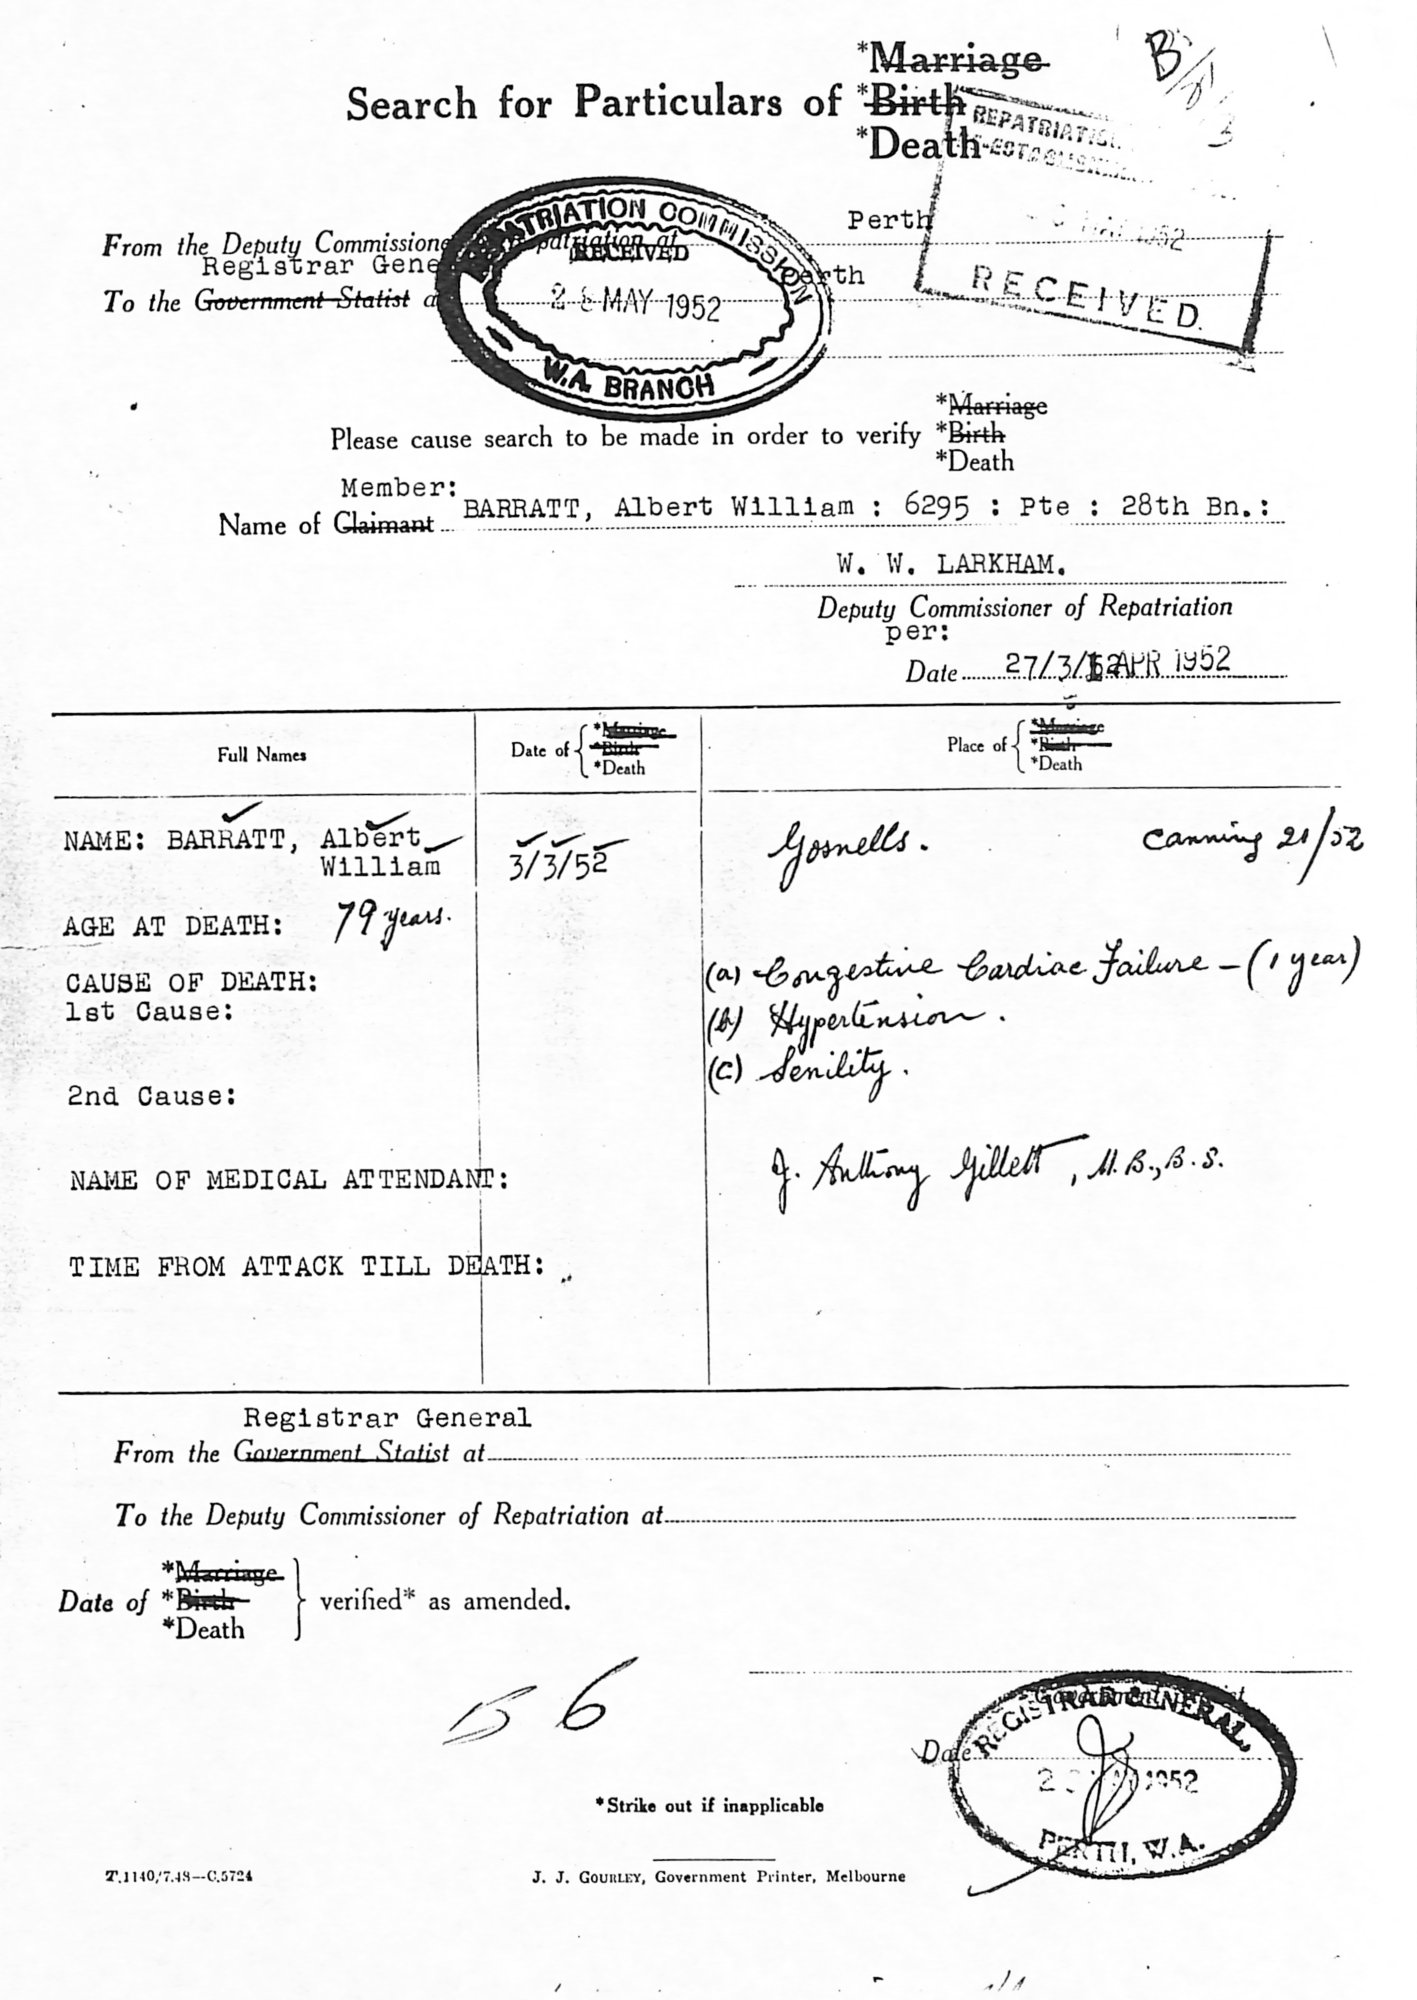 *Marriage
Search for Particulars of *Birth
*Death
B
REPATRIATION
RECEIVED
REPATRIATION COMMISSION
RECEIVED
28 MAY 1952
W.A. BRANCH
From the Deputy Commissioner of Repatriation at Perth
Registrar General
To the Government Statist at Perth
Please cause search to be made in order to verify *Marriage
*Birth
*Death
Member:
Name of Claimant BARRATT, Albert William : 6295 : Pte : 28th Bn.:
W. W. LARKHAM.
Deputy Commissioner of Repatriation
per:
Date 27/3/52 1 APR 1952
Full Names
Date of { *Marriage *Birth *Death
Place of { *Marriage *Birth *Death
NAME: BARRATT, Albert
William
3/3/52
Gosnells. Canning 21/52
AGE AT DEATH: 79 years.
CAUSE OF DEATH:
1st Cause:
(a) Congestive Cardiac Failure - (1 year)
(b) Hypertension.
(c) Senility.
2nd Cause:
NAME OF MEDICAL ATTENDANT: J. Anthony Gillett, M.B., B.S.
TIME FROM ATTACK TILL DEATH:
Registrar General
From the Government Statist at
To the Deputy Commissioner of Repatriation at
*Marriage
Date of *Birth } verified* as amended.
*Death
B 6
Government Statist
REGISTRAR GENERAL,
Date
1952
PERTH, W.A.
*Strike out if inapplicable
T.1140/7.48—C.5724
J. J. GOURLEY, Government Printer, Melbourne